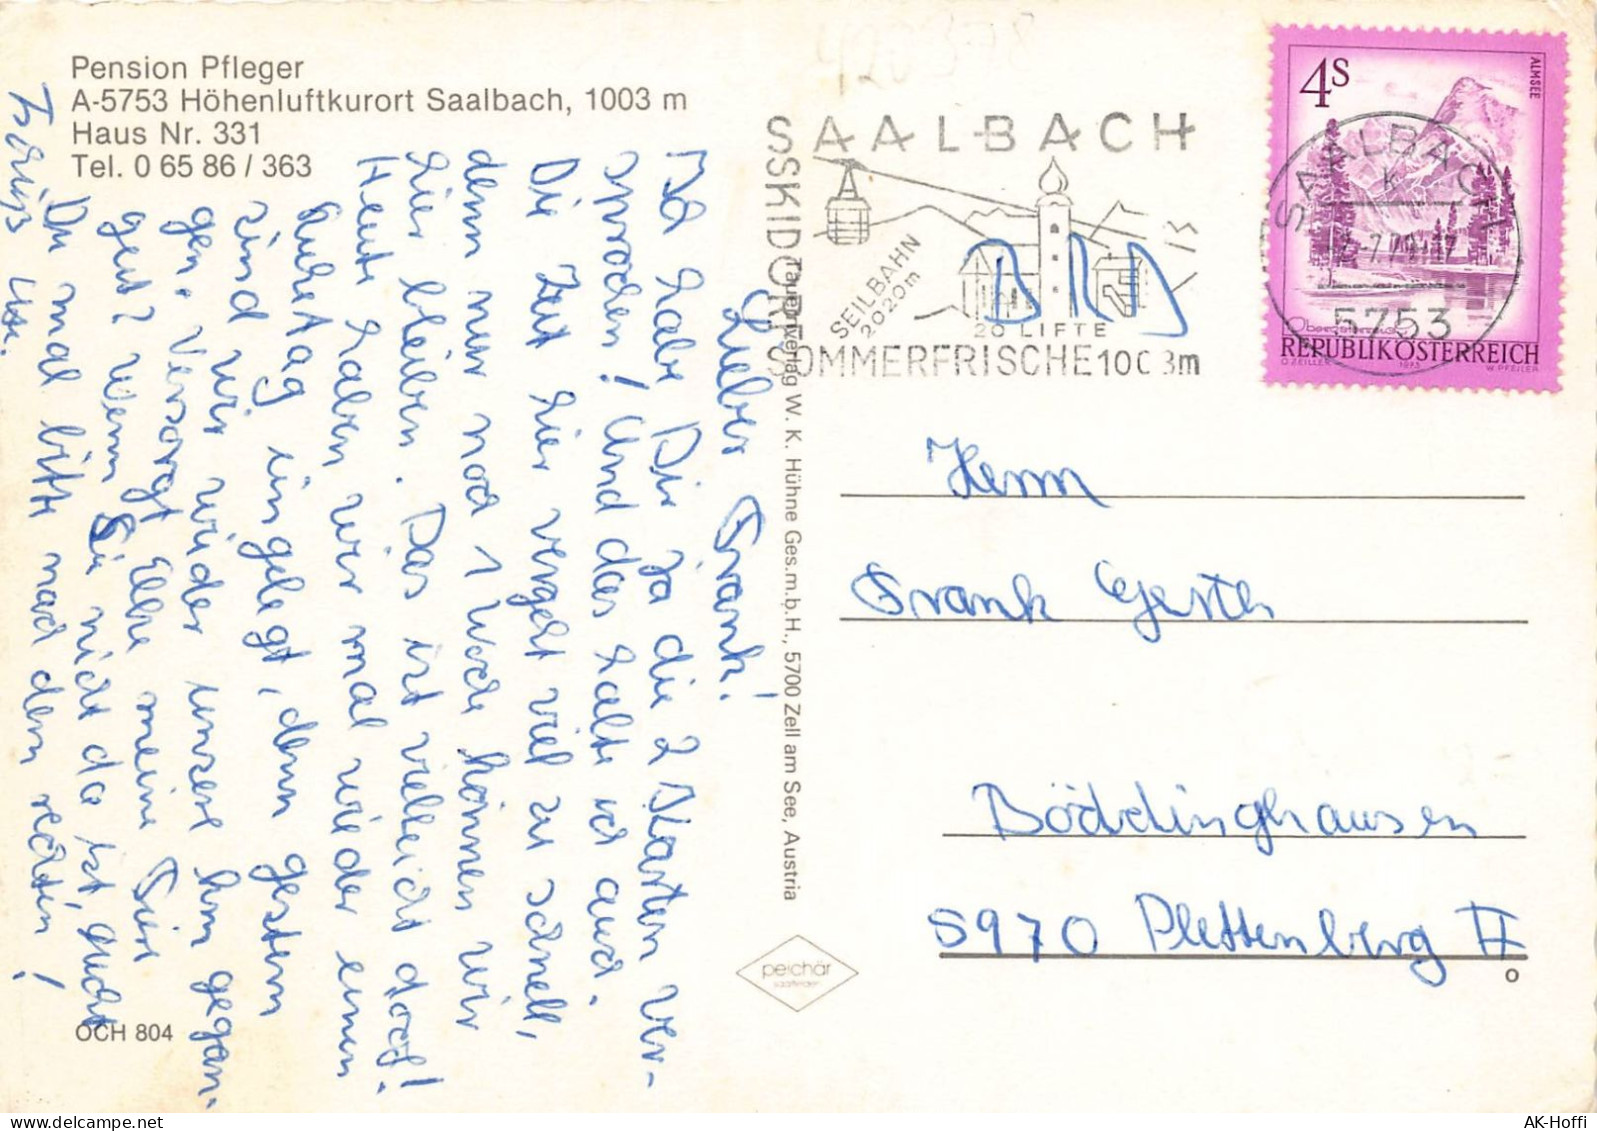 Pension Pfleger
A-5753 Höhenluftkurort Saalbach, 1003 m
Haus Nr. 331
Tel. 0 65 86 / 363
Lieber Frank!
Ich habe Dir ja die 2 Karten ver-
sprochen! Und das halte ich auch.
Die Zeit hier vergeht viel zu schnell,
denn nur noch 1 Woche können wir
hier bleiben. Das ist vielleicht doof!
Heute haben wir mal wieder einen
Ruhetag eingelegt, denn gestern
sind wir wieder unsere km gegan-
gen. Versorgt Elke meine Tiere
gut? Wenn Sie nicht da ist, guckt
Du mal bitte nach dem rechten!
Tschüß
OCH 804
Tauernverlag W. K. Hühne Ges.m.b.H., 5700 Zell am See, Austria
peichär
saalfelden
SAALBACH
SSKIDORF
SEILBAHN
2020m
20 LIFTE
SOMMERFRISCHE 1003m
4S
ALMSEE
SAALBACH
5753
Oberösterreich
REPUBLIK ÖSTERREICH
O.ZEILLER 1973 W. PFEILER
Herrn
Frank
Böddinghausen
5970 Plettenberg II
AK-Hoffi
www.delcampe.net